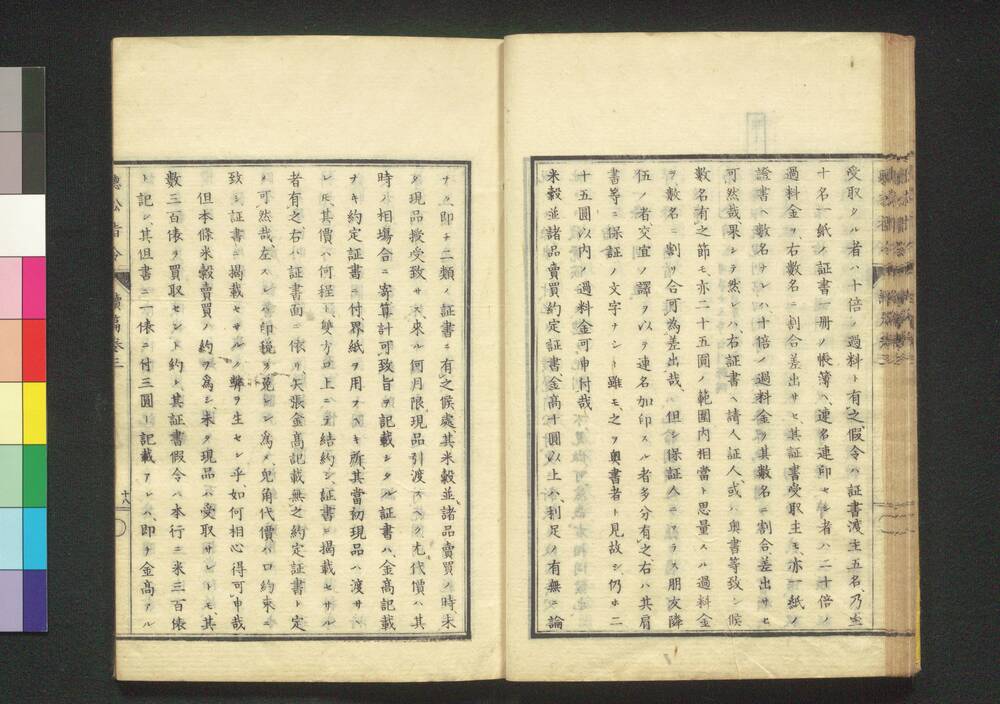 受取タル者ハ十倍ノ過料ト有之假令ハ証書渡主五名乃至
十名一紙ノ証書一册ノ帳簿ヘ連名連印セシ者ハ二十倍ノ
過料金ヲ右數名ニ割合差出サセ其証書受取主モ亦一紙ノ
證書ヘ數名ナレハ十倍ノ過料金ヲ其數名ニ割合差出サセ
可然哉果シテ然レハ右証書ヘ請人証人或ハ奥書等致シ候
數名有之節モ亦二十五圓ノ範圍内相當ト思量スル過料金
ヲ數名ニ割リ合可為差出哉但シ保証人ニアラス朋友隣
伍ノ者交宜ノ譯ヲ以テ連名加印スル者多分有之右ハ其肩
書等ニ保証ノ文字ナシト雖モ之ヲ奥書者ト見故シ仍ホ二
十五圓以内ノ過料金可申付哉
米穀並諸品賣買約定証書金高十圓以上ハ利足ノ有無ニ論
ナク即チ二類ノ証書ニ有之候處其米穀並諸品賣買ノ時未
タ現品授受致サス來ル何月限現品引渡スヘク尤代價ハ其
時ノ相場合ニ寄算計可致旨ヲ記載シタル証書ハ金高記載
ヲキ約定証書ニ付界紙ヲ用フヘキ所其當初現品ハ渡サヘ
レ𪜈其價ハ何程ト雙方口上ニテ結約シ証書ニ揭載セサル
者有之右ハ証書面ニ依リ矢張金高記載無之約定証書ト定
メ可然哉左スレハ印税ヲ免レン為メ兎角代價ハ口約束ニ
致シ証書ニ揭載セサルノ弊ヲ生セン乎如何相心得可申哉
但本條米穀賣買ノ約ヲ為シ未タ現品ハ受取サレトモ其
數三百俵ヲ買取セント約シ其証書假令ハ本行ニ米三百俵
ト記シ其但書ニ一俵ニ付三圓ト記載アレハ即チ金高アル
十八